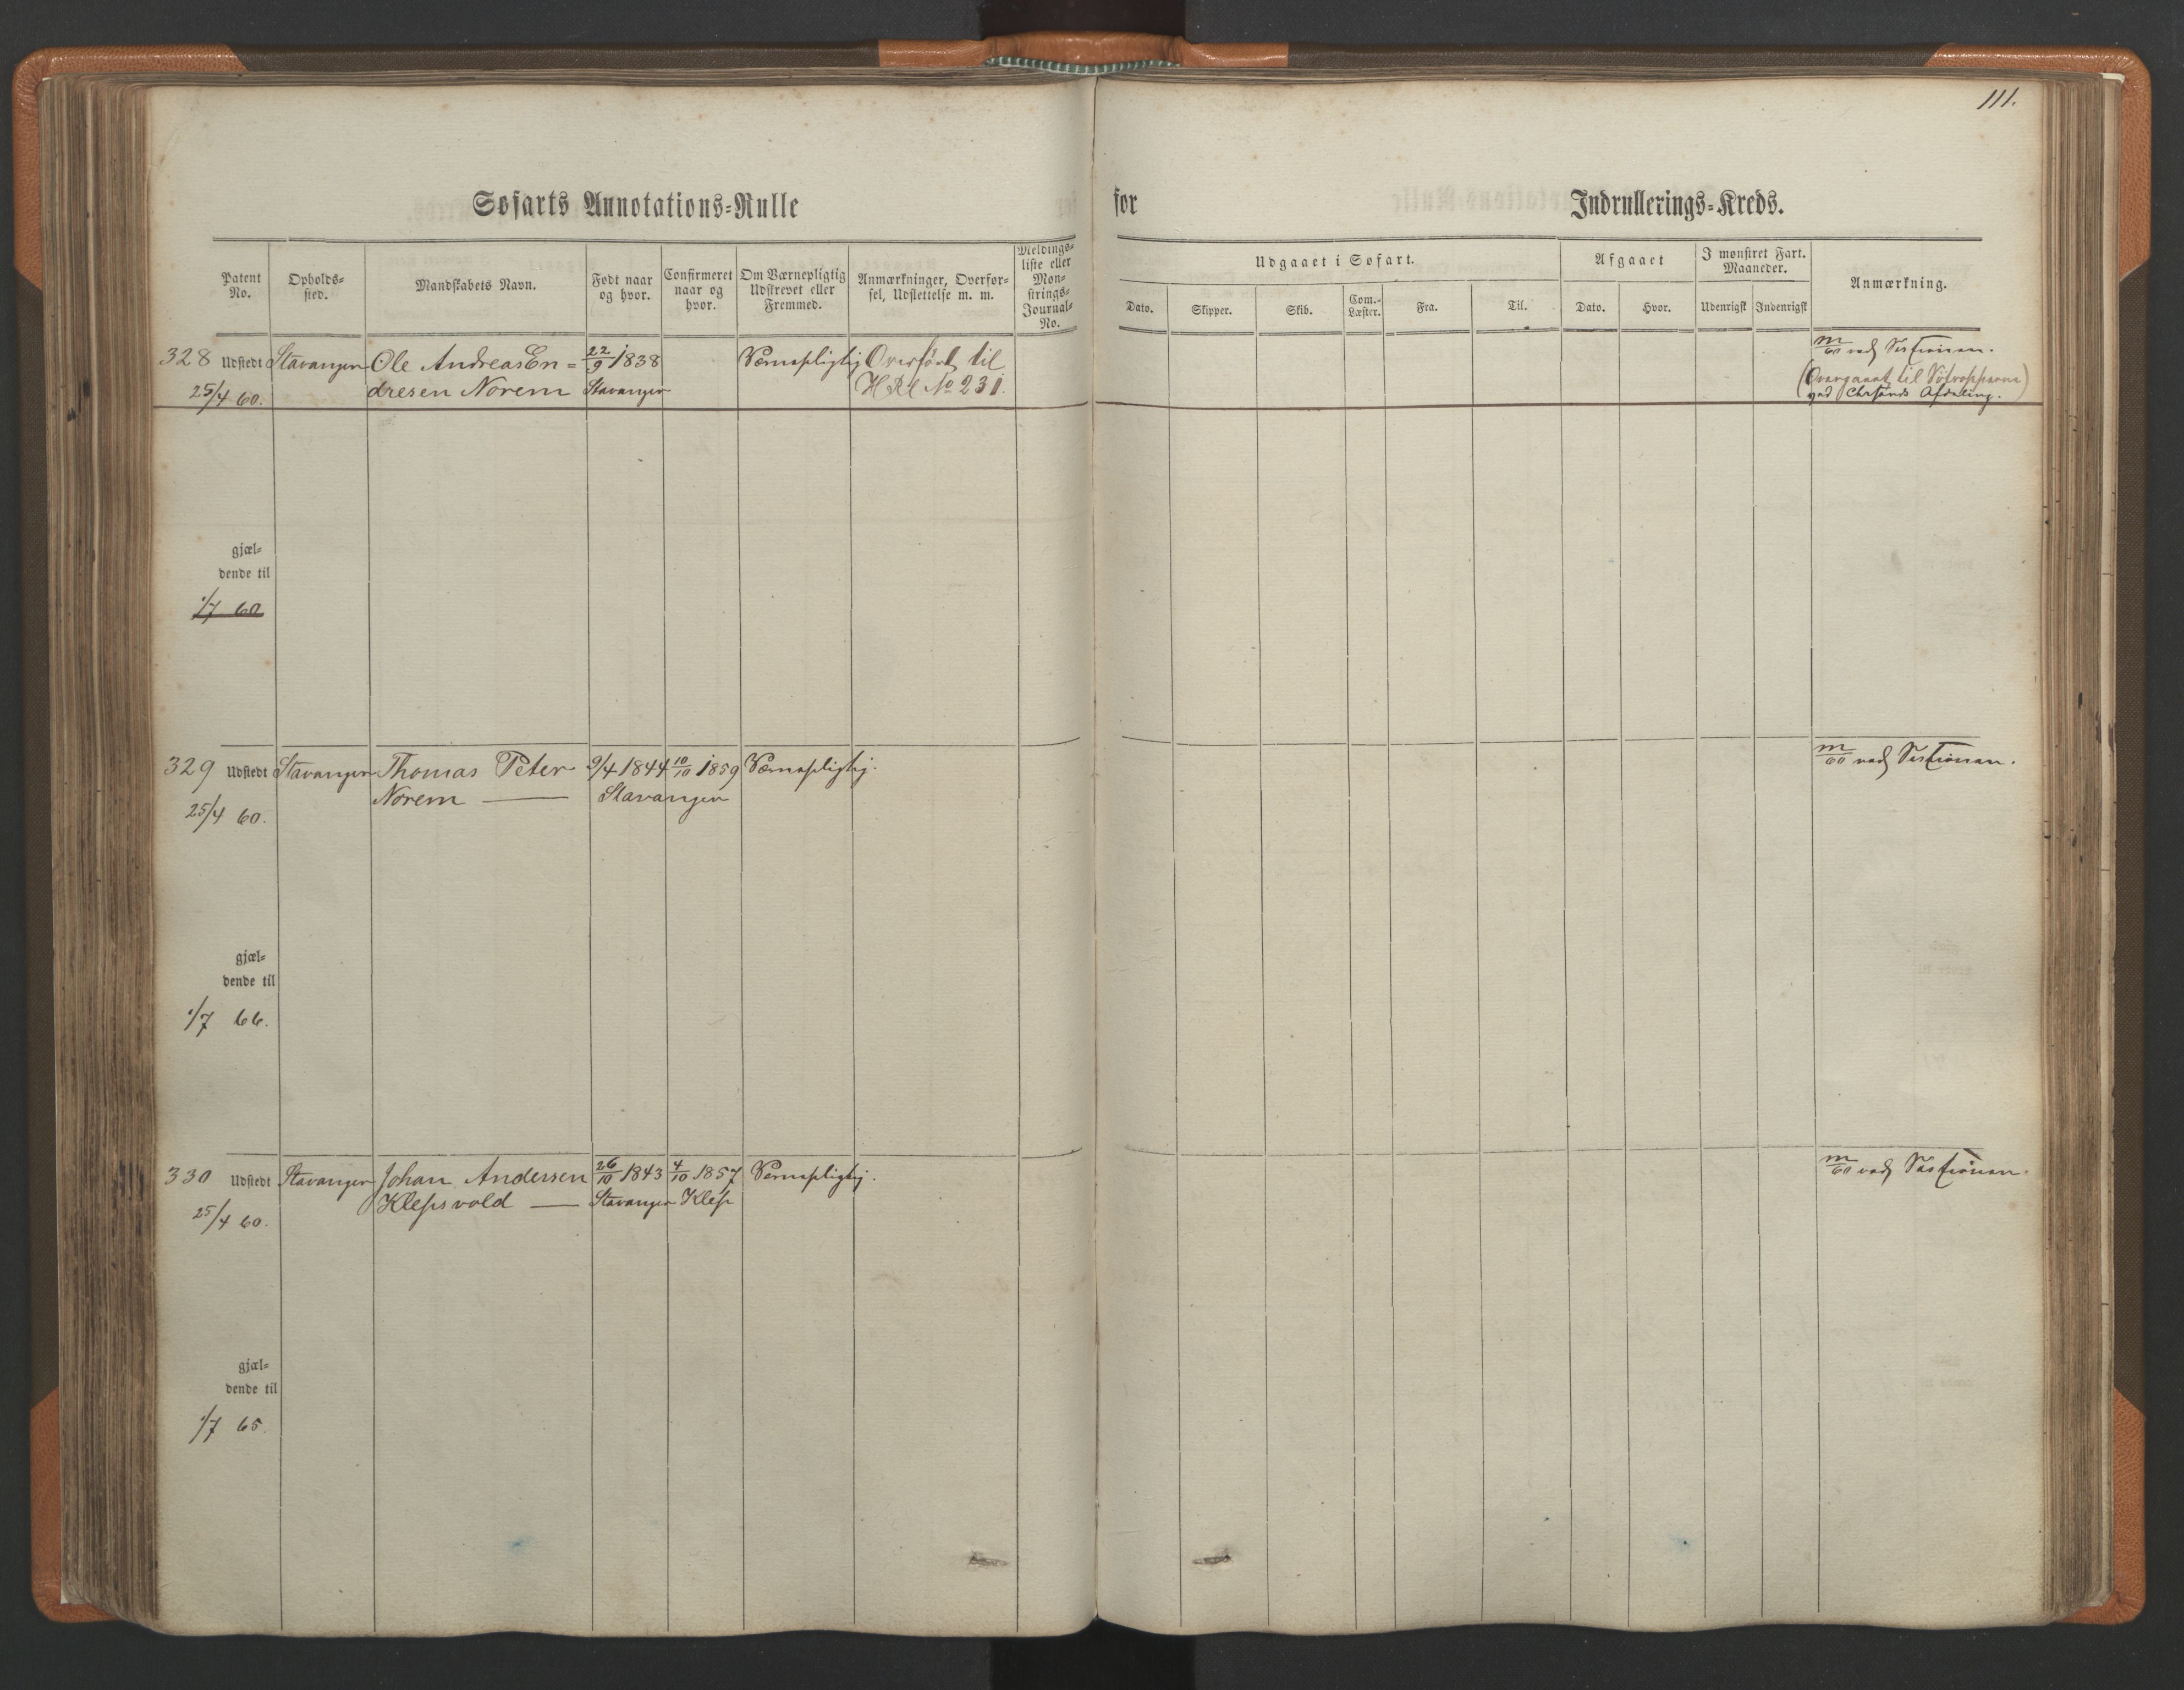 111.
Søfarts Annotations-Rulle
for Indrullerings-Kreds.
Patent No.
Opholds-sted.
Mandskabets Navn.
Født naar og hvor.
Confirmeret naar og hvor.
Om Værnepligtig Udskrevet eller Fremmed.
Anmærkninger, Overførsel, Udslettelse m. m.
Meldings-liste eller Mønstrings-Journal-No.
Udgaaet i Søfart.
Dato.
Skipper.
Skib.
Com.-Læster.
Fra.
Til.
Afgaaet
Dato.
Hvor.
I mønstret Fart. Maaneder.
Udenrigsk
Indenrigsk
Anmærkning.
328 Udstedt Stavanger Ole Andreas En= 22/9 1838 Værnepligtig Overført til
25/4 60. dresen Norem Stavanger H.Rl No 231.
m/60 ved Sessionen.
(Overgaaet til Søtropperne)
ved Chrsands Afdeling.
gjæl-
dende til
1/7 60
329 Udstedt Stavanger Thomas Peter 9/4 1844 10/10 1859 Værnepligtig.
25/4 60. Norem — Stavanger
m/60 ved Sessionen.
gjæl-
dende til
1/7 66.
330 Udstedt Stavanger Johan Andersen 26/10 1843 4/10 1857 Værnepligtig.
25/4 60. Klepsvold — Stavanger Klep
m/60 ved Sessionen.
gjæl-
dende til
1/7 65.